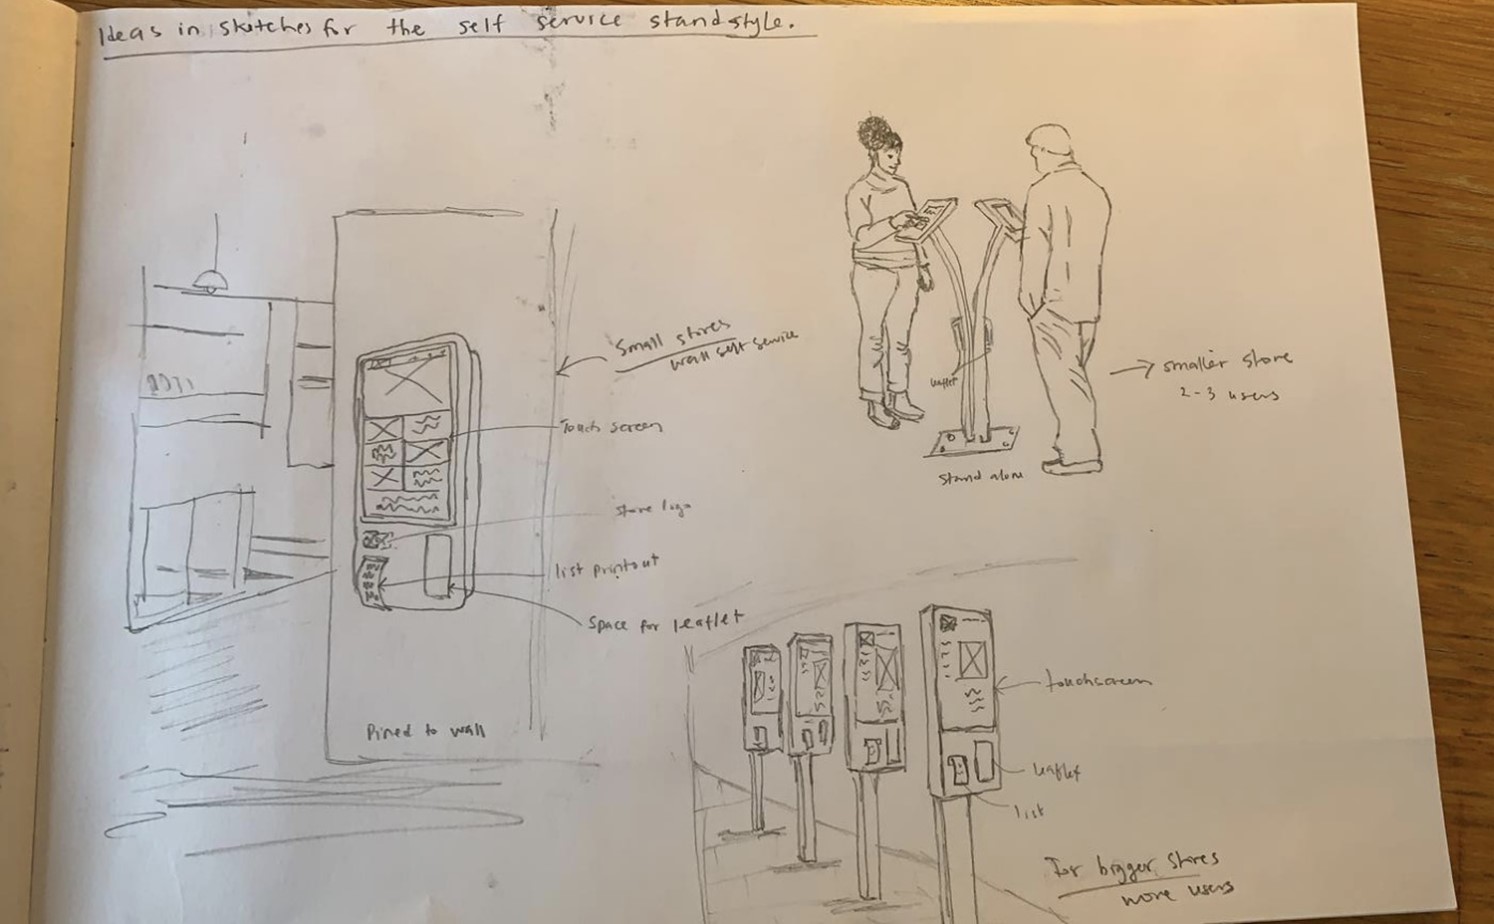 Ideas in sketches for the self service stand style.
Small stores
wall self service
Touch screen
store logo
list printout
Space for leaflet
Pined to wall
leaflet
Stand alone
smaller store
2-3 users
touchscreen
leaflet
list
For bigger stores
more users